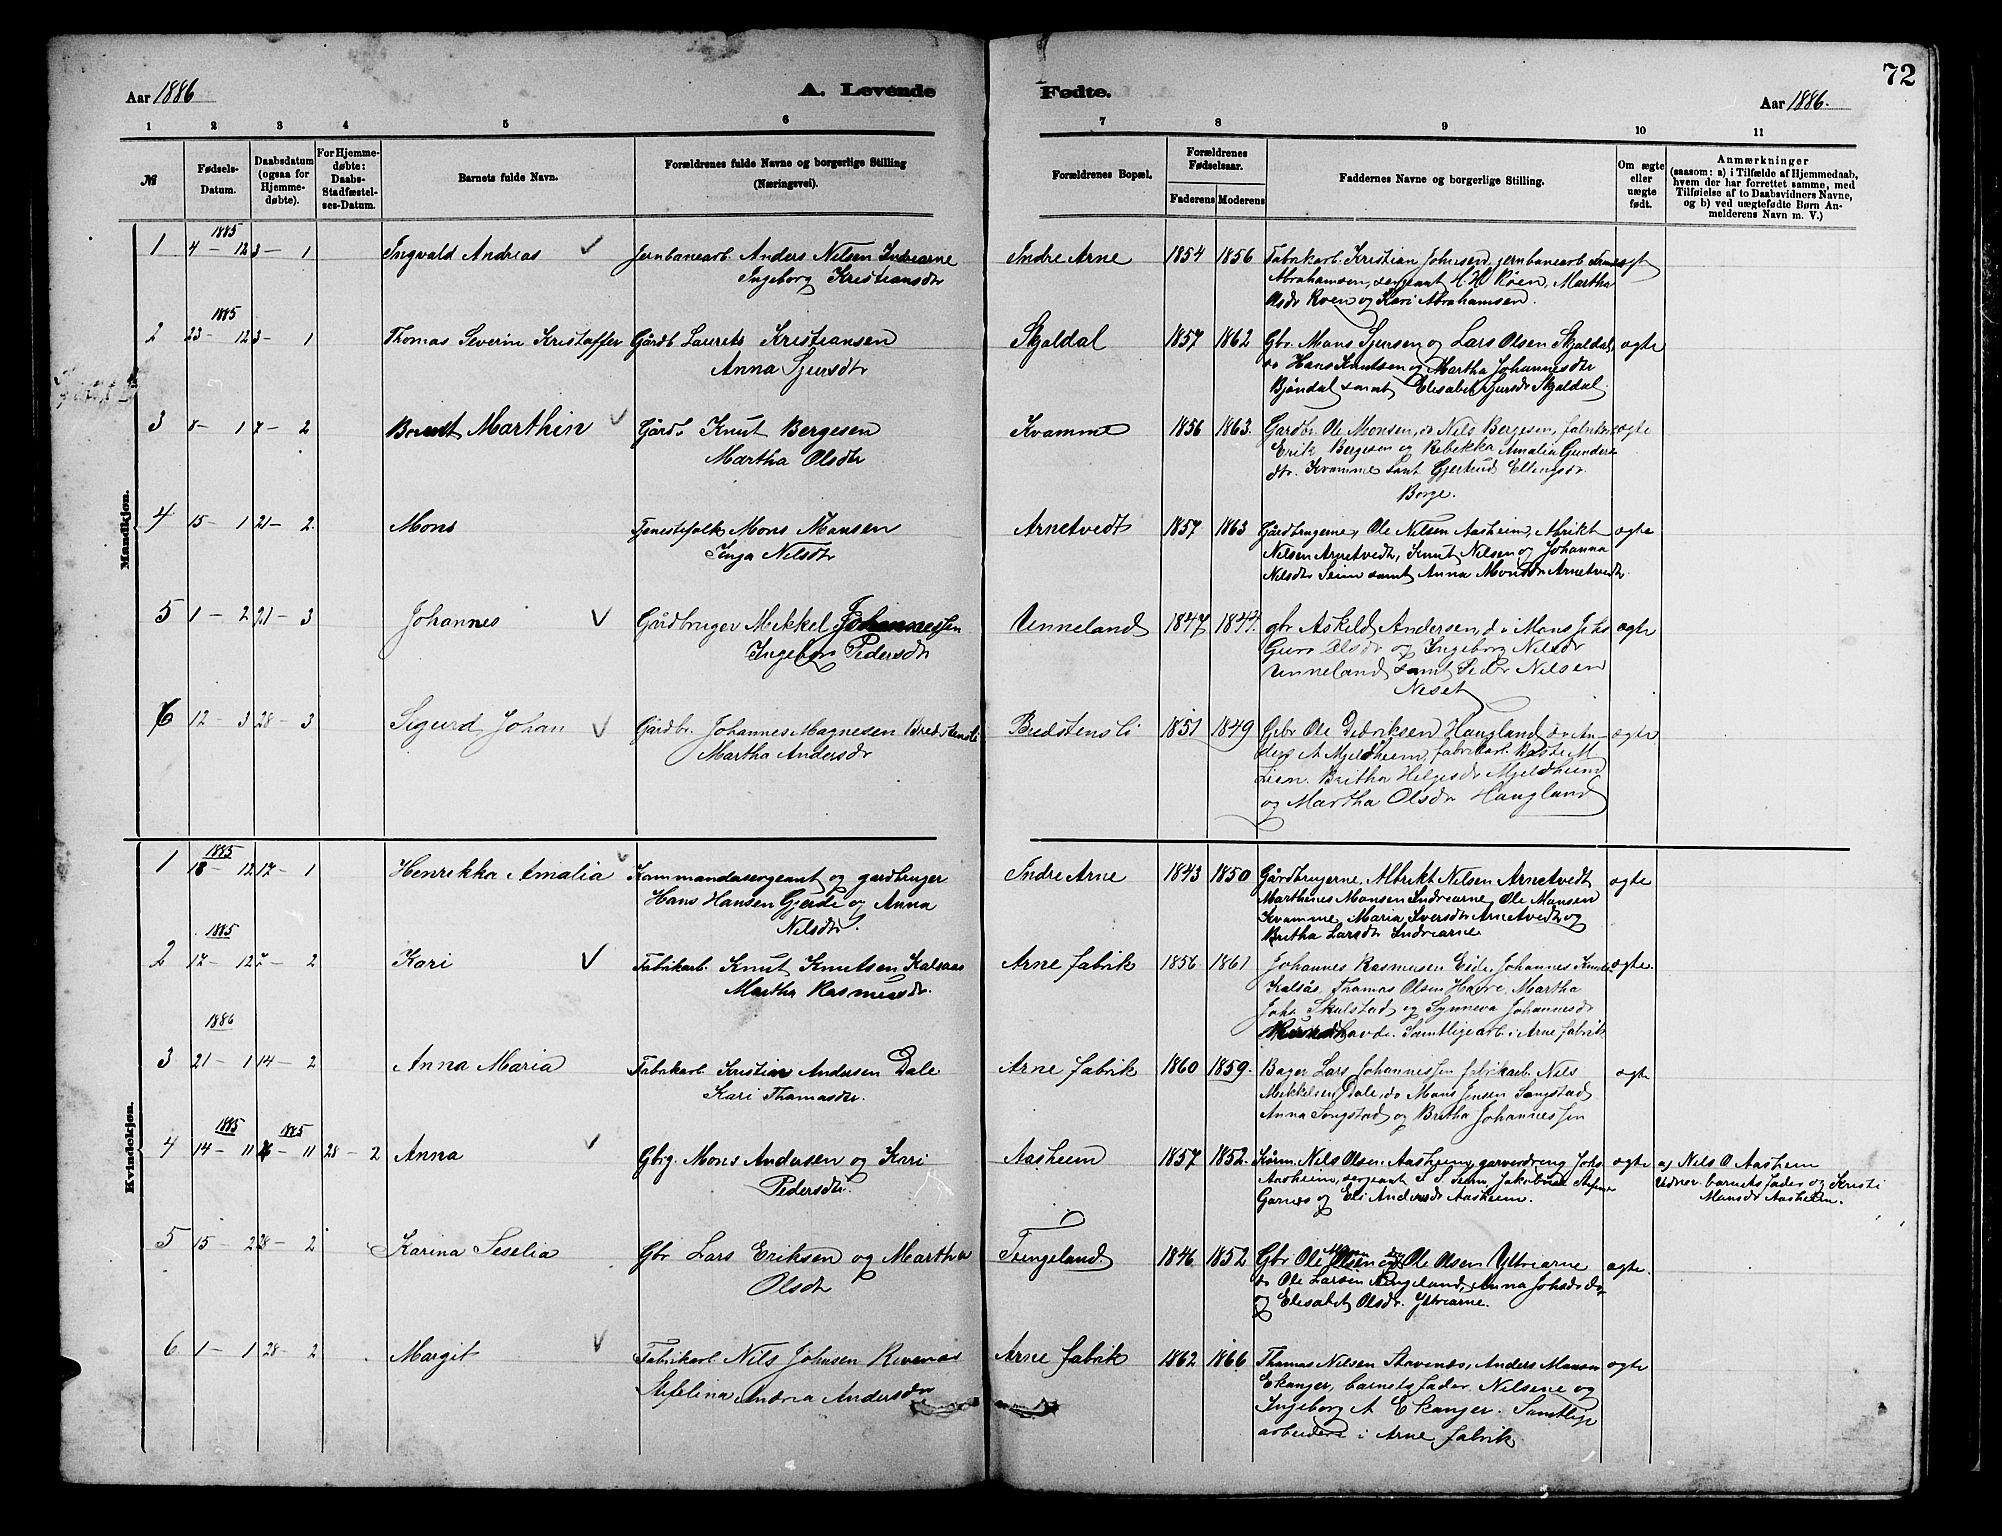 72
Aar 1886
A. Levende
Fødte.
Aar 1886.
1 2 3 4 5 6 7 8 9 10 11
№
Fødsels-
Datum.
Daabsdatum
(ogsaa for
Hjemme-
døbte).
For Hjemme-
døbte:
Daabs-
Stadfæstel-
ses-Datum.
Barnets fulde Navn.
Forældrenes fulde Navne og borgerlige Stilling
(Næringsvei).
Forældrenes Bopæl.
Forældrenes
Fødselsaar.
Faderens Moderens
Faddernes Navne og borgerlige Stilling.
Om ægte
eller
uægte
født.
Anmærkninger
(saasom: a) i Tilfælde af Hjemmedaab,
hvem der har forrettet samme, med
Tilføielse af to Daabsvidners Navne,
og b) ved uægtefødte Børn An-
melderens Navn m. V.)
Mandkjøn.
1885
1 4 – 12 3 – 1 Ingvald Andreas Jernbanearb. Anders Nilsen Indrearne
Ingeborg Kristiansdtr
Indre Arne 1854 1856 Fabrikarb. Kristian Johnsen, jernbanearb.
Abrahamsen, sergeant H. H. Röen, Martha
Olsdr Roen og Kari Abrahamsen.
ægte
1885
2 23 – 12 3 – 1 Thomas Severin Kristoffer Gårdb. Laurets Kristiansen
Anna Sjursdtr
Skjaldal 1857 1862 Gbr. Mons Sjursen og Lars Olsen Skjaldal,
do Hans Knutsen og Martha Johannesdtr
Bjöndal samt Elisabet Sjursdr Skjaldal.
ægte
3 8 – 1 7 – 2 Berent Marthin Gårdb. Knut Bergesen
Martha Olsdtr
Kvamme 1856 1863. Gardbr. Ole Monsen, do Nils Bergesen, fabrikar
Erik Bergesen og Rebekka Amalia Gunders
dtr. Kvamme samt Gjertrud Ellingsdr.
Borge.
ægte
4 15 – 1 21 – 2 Mons Tjenestefolk Mons Monsen
Inga Nilsdtr
Arnetvedt 1857 1863 Gårdbrugerne, Ole Nilsen Aasheim, Albrikt
Nilsen Arnetvedt, Knut Nilsen og Johanna
Nilsdtr Seim samt Anna Monsdr Arnetvedt.
ægte
5 1 – 2 21 – 3 Johannes Gårdbruger Mekkel Johannessen
Ingeborg Pedersdtr
Unneland 1847 1844. gbr Askild Andersen, do Mons Johs
Guro Olsdr og Ingeborg Nilsdr
Unneland samt Peder Nilsen
Neset
ægte
6 12 – 3 28 – 3 Sigurd Johan Gårdbr. Johannes Magnesen Bredstensli
Martha Andersdr
Bredstensli 1851 1849 Gbr Ole Didriksen Haugland do An-
ders A Mjeldheim, fabrikarb. Baste M.
Lien. Britha Helgesdr Mjeldheim
og Martha Olsdr Haugland
ægte
Kvindekjøn.
1885
1 18 – 12 17 – 1 Henrikka Amalia Kommandersergeant og gardbruger
Hans Hansen Gjerde og Anna
Nilsdtr.
Indre Arne 1843 1850 Gårdbrugerne, Albrikt Nilsen Arnetvedt
Marthines Monsen Indrearne, Ole Monsen
Kvamme, Maria Iversdtr Arnetvedt og
Britha Larsdtr Indrearne
ægte
1885
2 17 – 12 7 – 2 Kari Fabrikarb. Knut Knutsen Kalsaas
Martha Rasmusdr.
Arne fabrik 1856 1861 Johannes Rasmusen Eide, Johannes Knuts
Kalsås, Thomas Olsen Havre, Martha
Johs Skulstad og Synneva Johannesdr
Havde. Samtlige arb. i Arne fabrik
ægte.
1886
3 21 – 1 14 – 2 Anna Maria Fabrikarb. Kristian Andersen Dale
Kari Thomasdtr.
Arne fabrik 1860 1859. Bager Lars Johannessen fabrikarb. Nils
Mekkelsen Dale, do Mons Jensen Songstad
Anna Songstad og Britha Johannessen
ægte
1885 1885
4 14 – 11 26 – 11 28 – 2 Anna Gbrg. Mons Andersen og Kari
Pedersdtr.
Aasheim 1857 1852. Kårm. Nils Olsen Aasheim, garverdreng Johs.
Aasheim, sergeant S. S. Seim, Jakobine
Garnes og Eli Andersdr Aasheim.
ægte a) Nils O Aasheim
barnets fader og Kristi
Monsdr Aasheim.
5 15 – 2 28 – 2 Karina Seselia Gbr Lars Eriksen og Martha
Olsdtr
Tengeland. 1846 1852 Gbr Ole Olsen og Ole Olsen Ytrearne
do Ole Larsen Tengeland, Anna Johsdr do
og Elisabet Olsdr. Ytrearne.
ægte.
6 1 – 1 28 – 2 Margit Fabrikarb Nils Johnsen Revenes
Stefelina Andrea Andersdtr
Arne fabrik 1862 1866 Thomas Nilsen Stavenes, Anders Monsen
Ekanger, barnets fader, Nilsene og
Ingeborg A Ekanger. Samtlige
arbeidere i Arne fabrik.
ægte